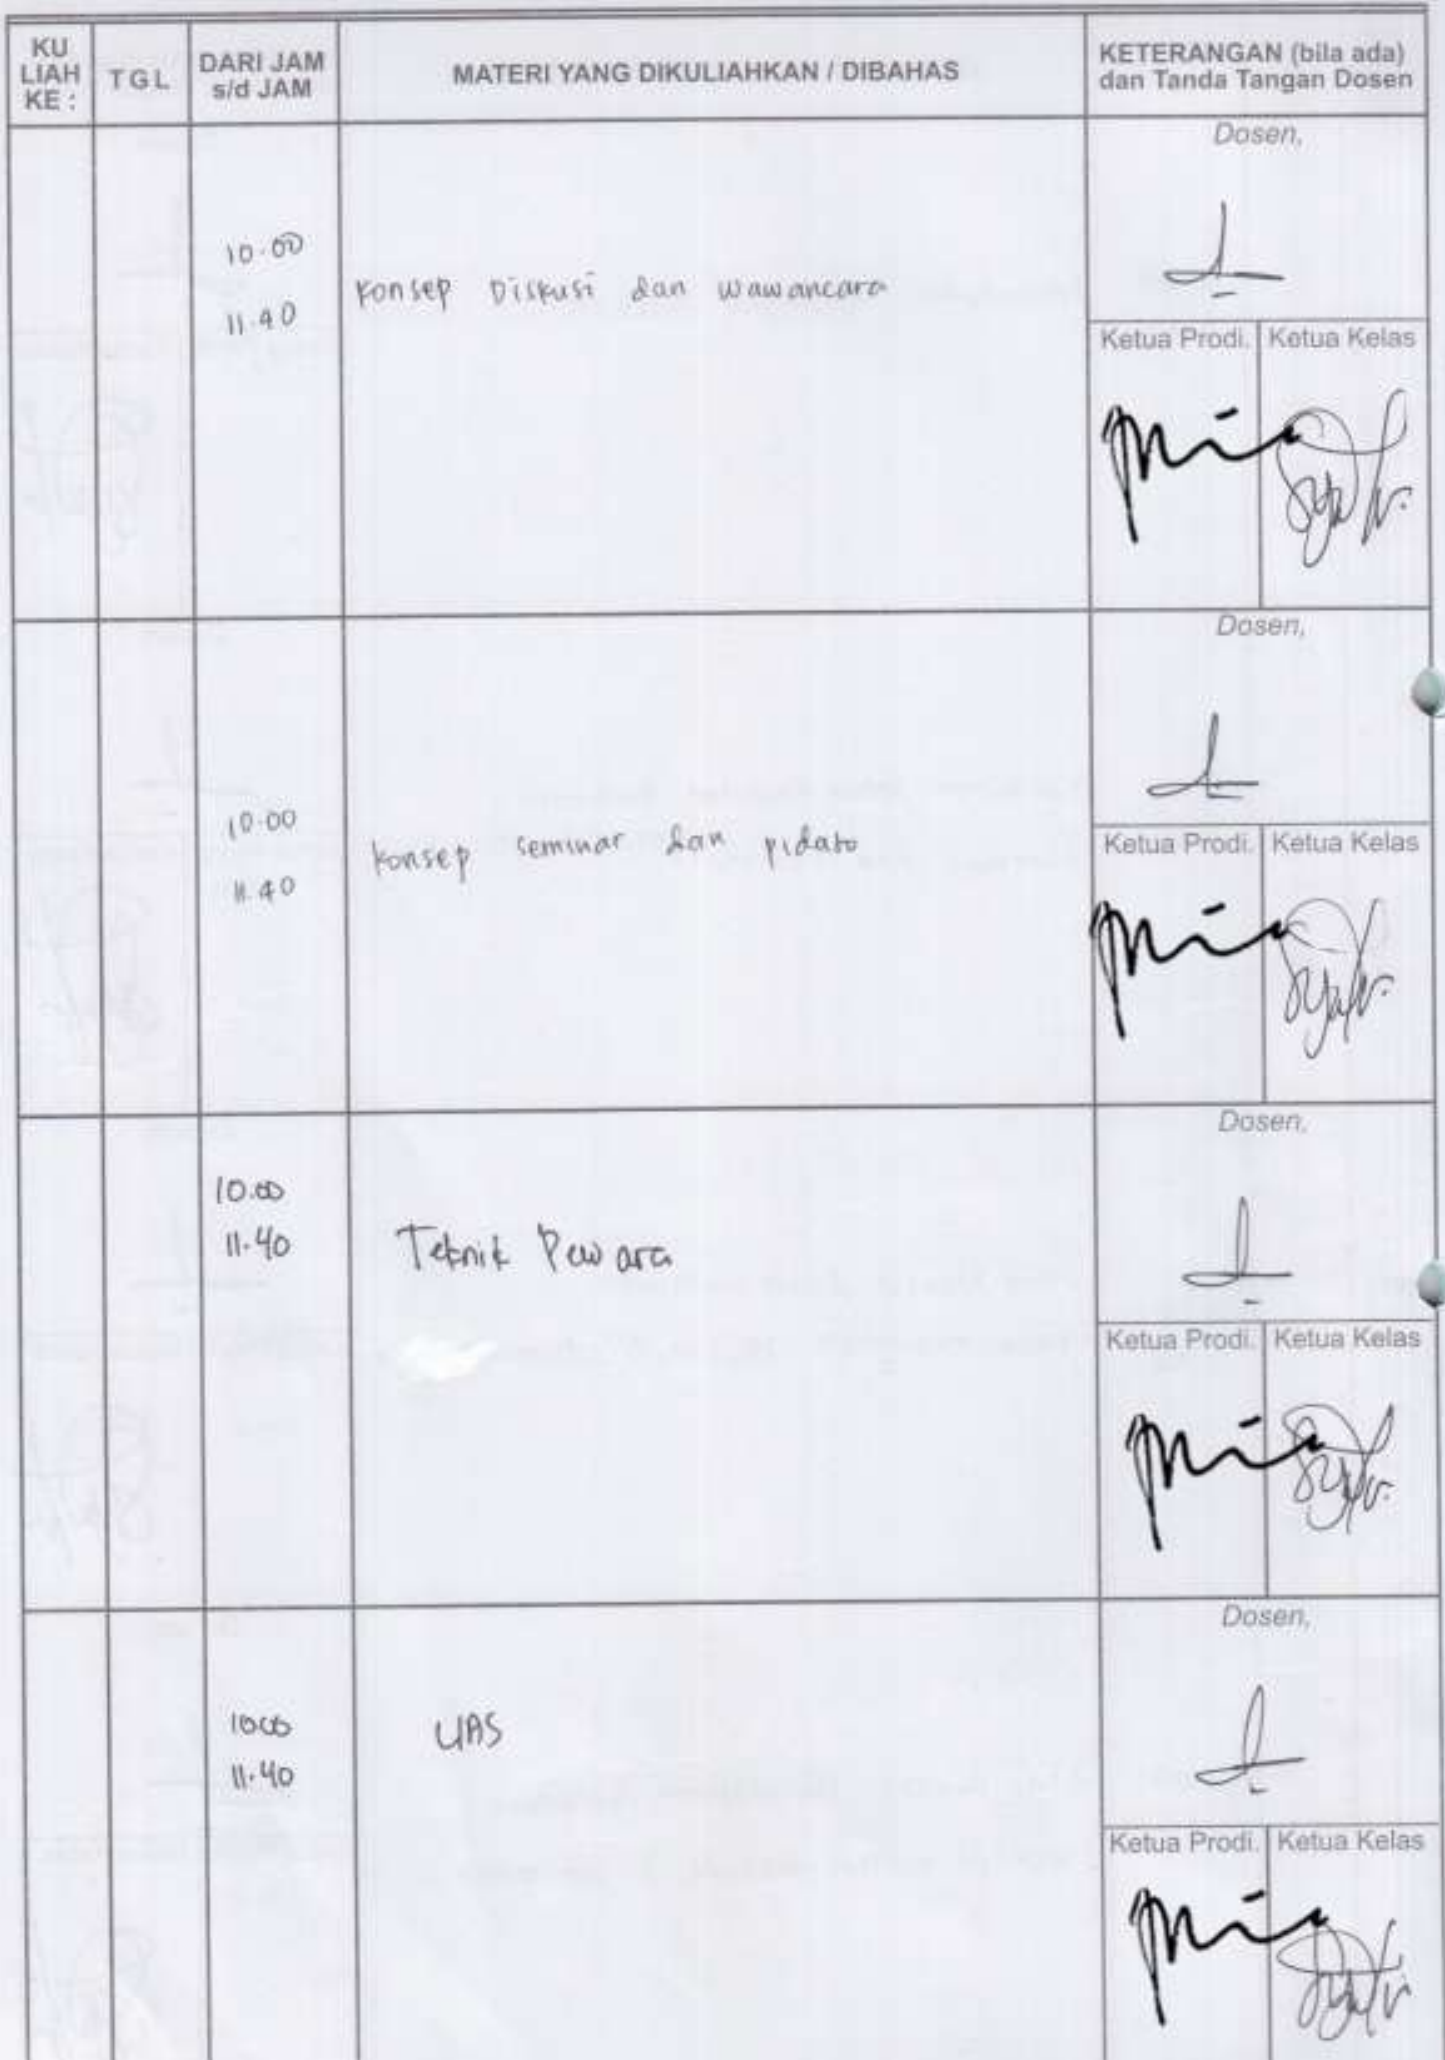 KU LIAH KE :
TGL
DARI JAM s/d JAM
MATERI YANG DIKULIAHKAN / DIBAHAS
KETERANGAN (bila ada) dan Tanda Tangan Dosen
Dosen,
10.00
11.40
Konsep Diskusi dan wawancara
Ketua Prodi. Ketua Kelas
Dosen,
10.00
11.40
Konsep seminar dan pidato
Ketua Prodi. Ketua Kelas
Dosen,
10.00
11.40
Teknik Pewara
Ketua Prodi. Ketua Kelas
Dosen,
10.00
11.40
UAS
Ketua Prodi. Ketua Kelas